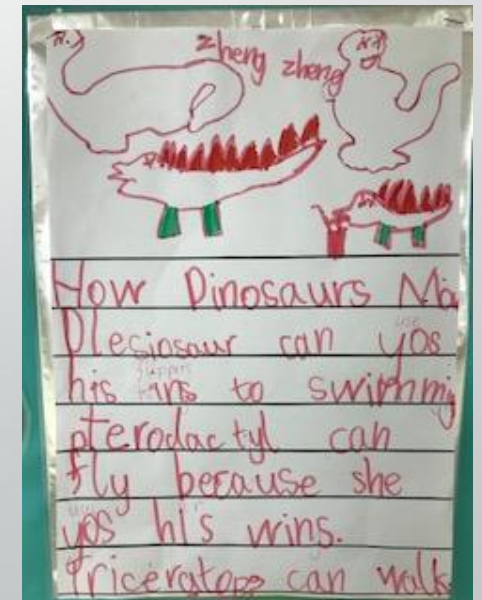 zheng zheng
How Dinosaurs Mo
Plesiosaur can yos
his fins to swimming
pterodactyl can
fly because she
yos his wins.
Triceratops can walk